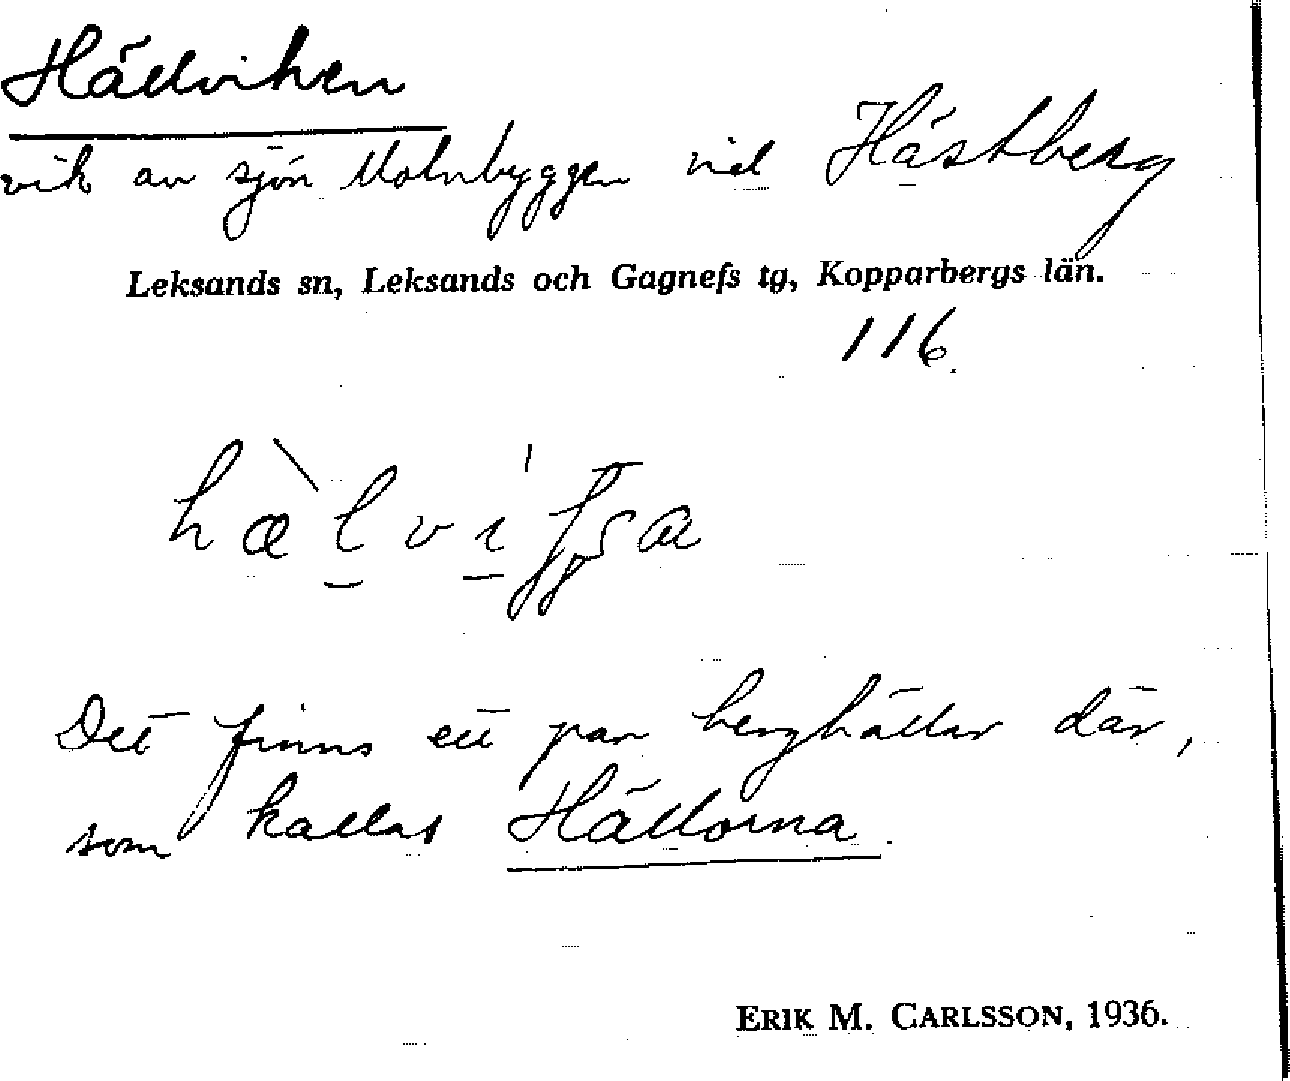 Hällviken
vik av sjön Molnbyggen vid Hästberg
Leksands sn, Leksands och Gagnefs tg, Kopparbergs län.
116.
Det finns ett par berghällar där,
som kallas Hällorna.
ERIK M. CARLSSON, 1936.